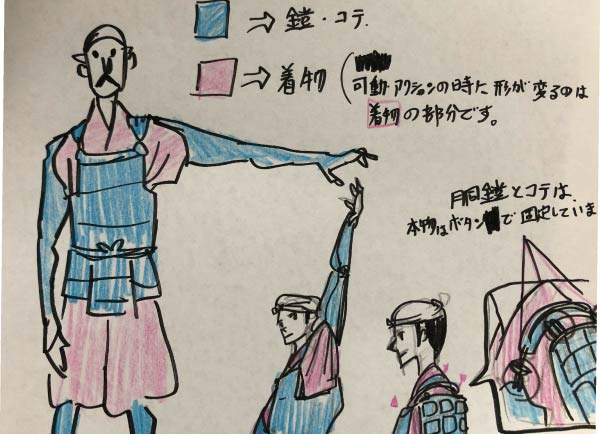 ⇒ 鎧・コテ.
⇒ 着物 (可動・アクションの時に形が変るのは
着物の部分です。
胴鎧とコテは、
本物はボタンで固定していま